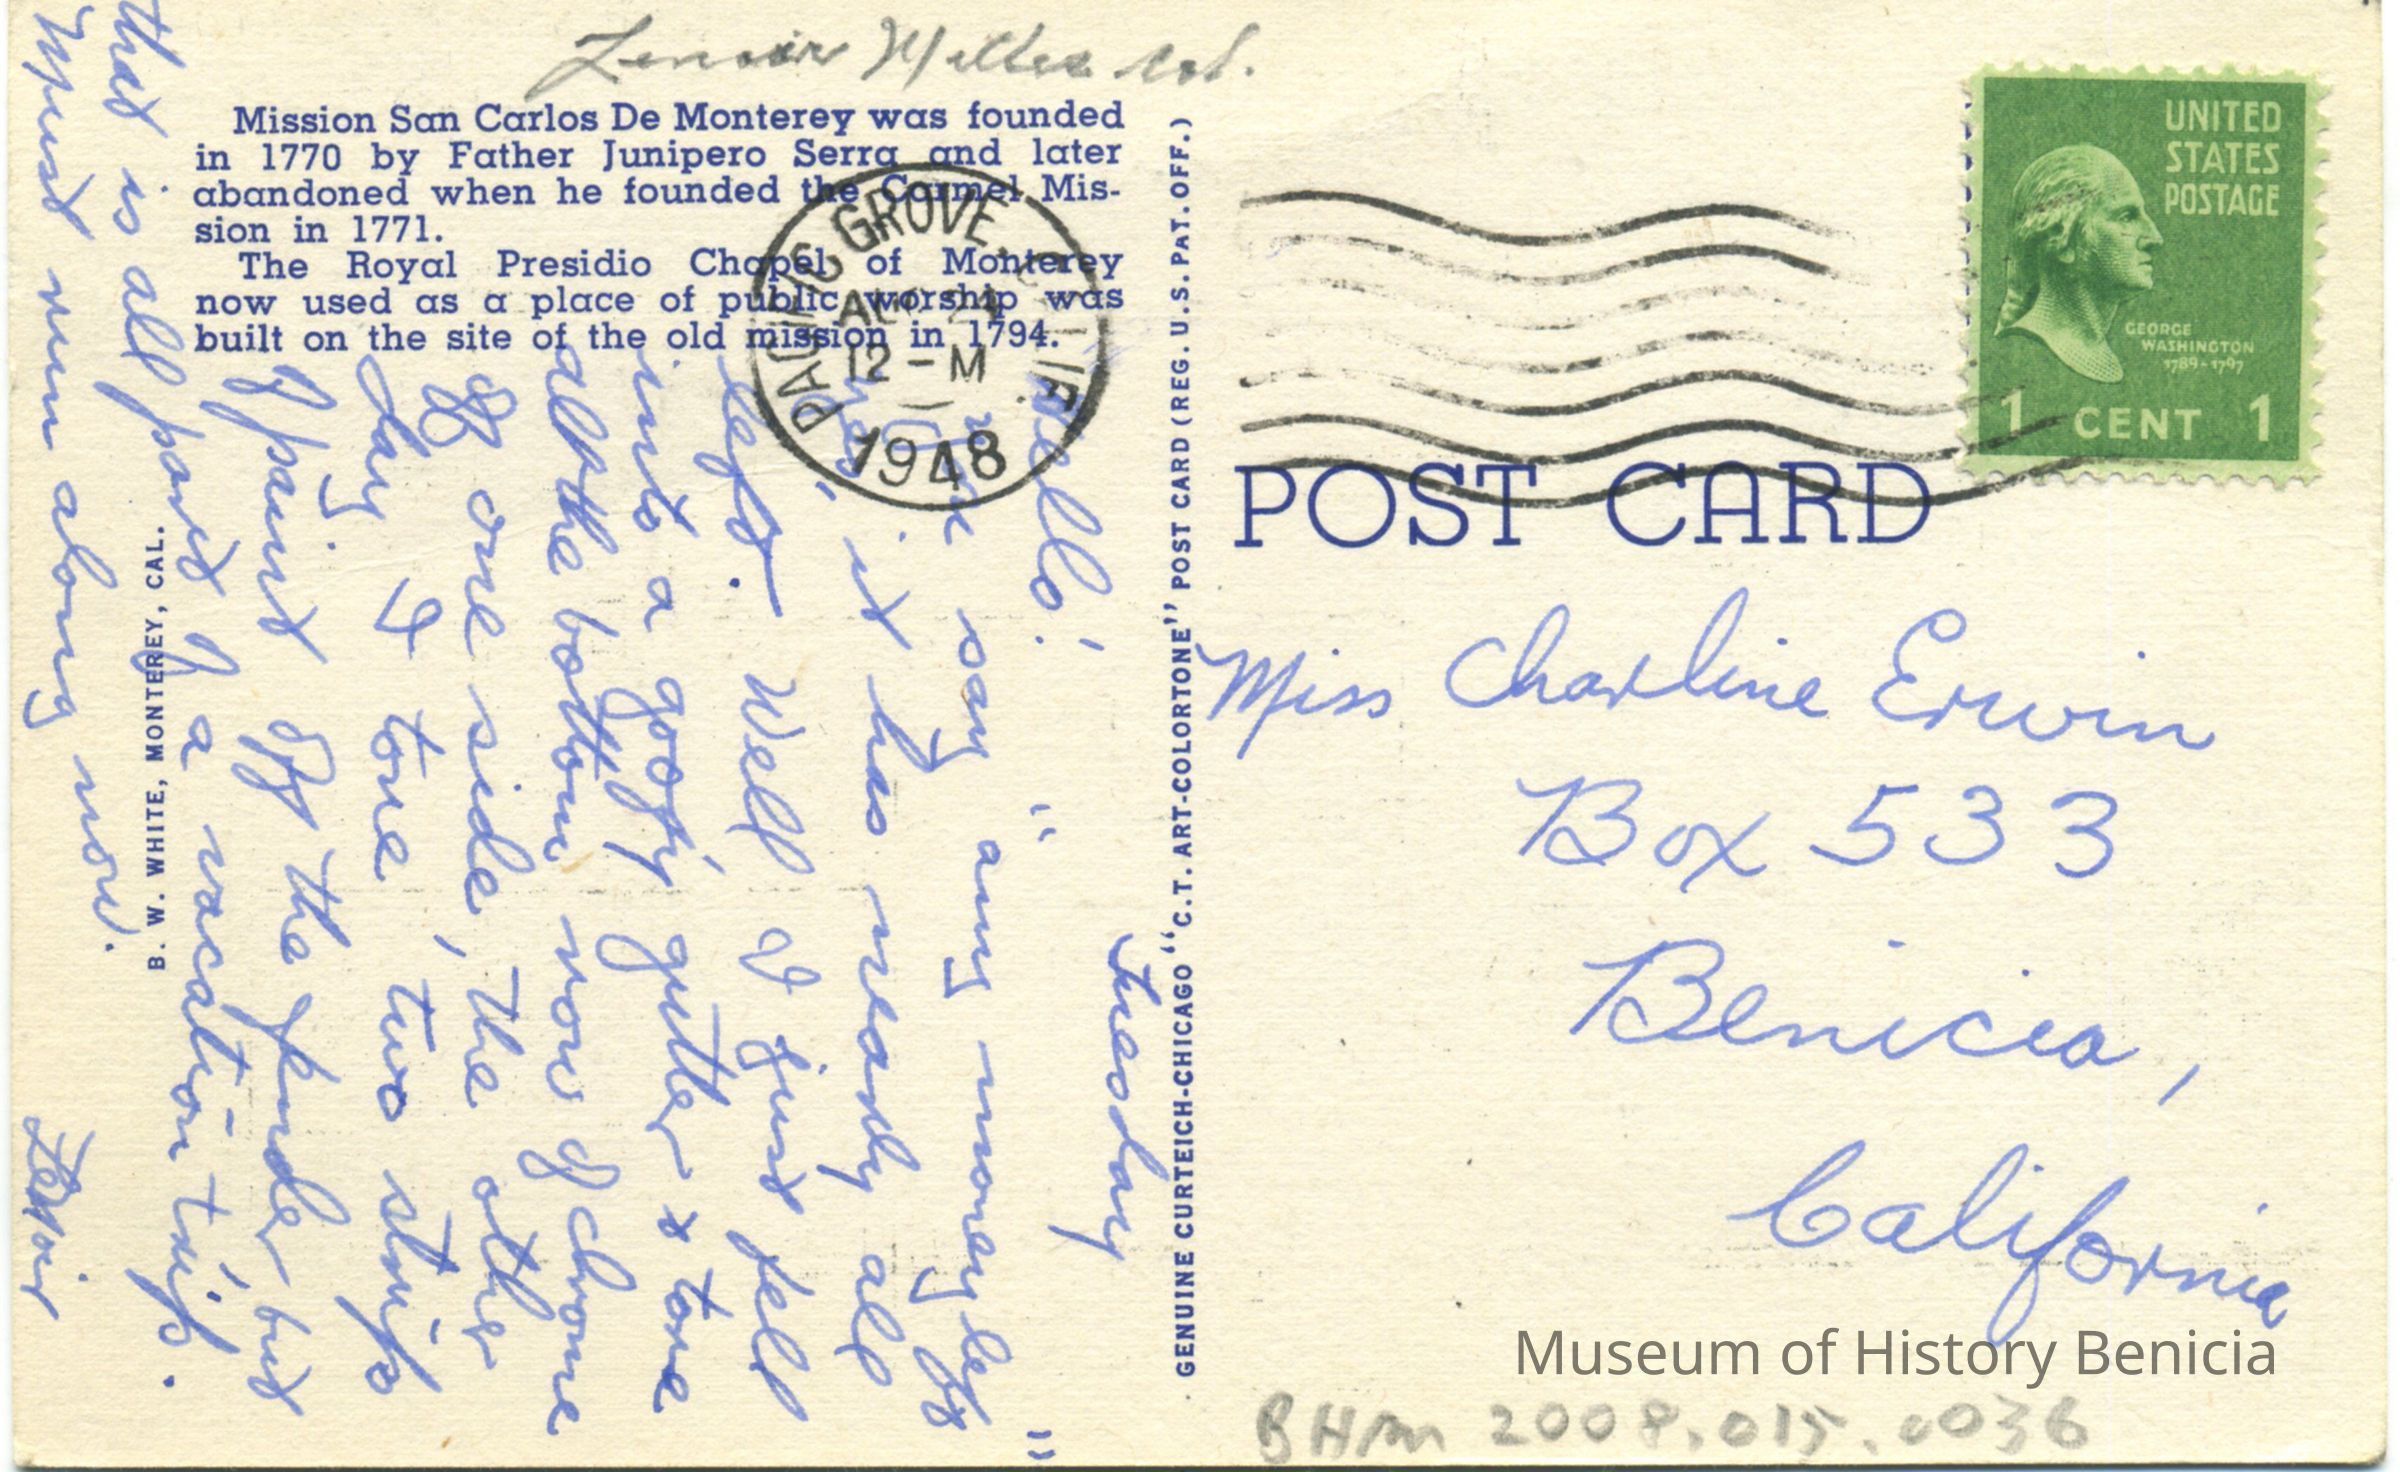 Lenoir Miller Col.
Mission San Carlos De Monterey was founded
in 1770 by Father Junipero Serra and later
abandoned when he founded the Carmel Mis-
sion in 1771.
The Royal Presidio Chapel of Monterey
now used as a place of public worship was
built on the site of the old mission in 1794.
PACIFIC GROVE, CALIF.
AUG 24
12 - M
1948
UNITED
STATES
POSTAGE
GEORGE
WASHINGTON
1789-1797
1 CENT 1
POST CARD
GENUINE CURTEICH-CHICAGO "C.T. ART-COLORTONE" POST CARD (REG. U.S. PAT. OFF.)
B. W. WHITE, MONTEREY, CAL.
Tuesday
Hello!
"
"
say any money left
it has nearly all
left. Well I just fell
into a goofy gutter & tore
all the bottom row of chrome
off one side, the other
day I tore two strips
of paint off the fender but
that is all part of a vacation trip.
Must run along now.
Lenoir
Miss Charline Erwin
Box 533
Benicia,
California
Museum of History Benicia
BHM 2008.015.0036